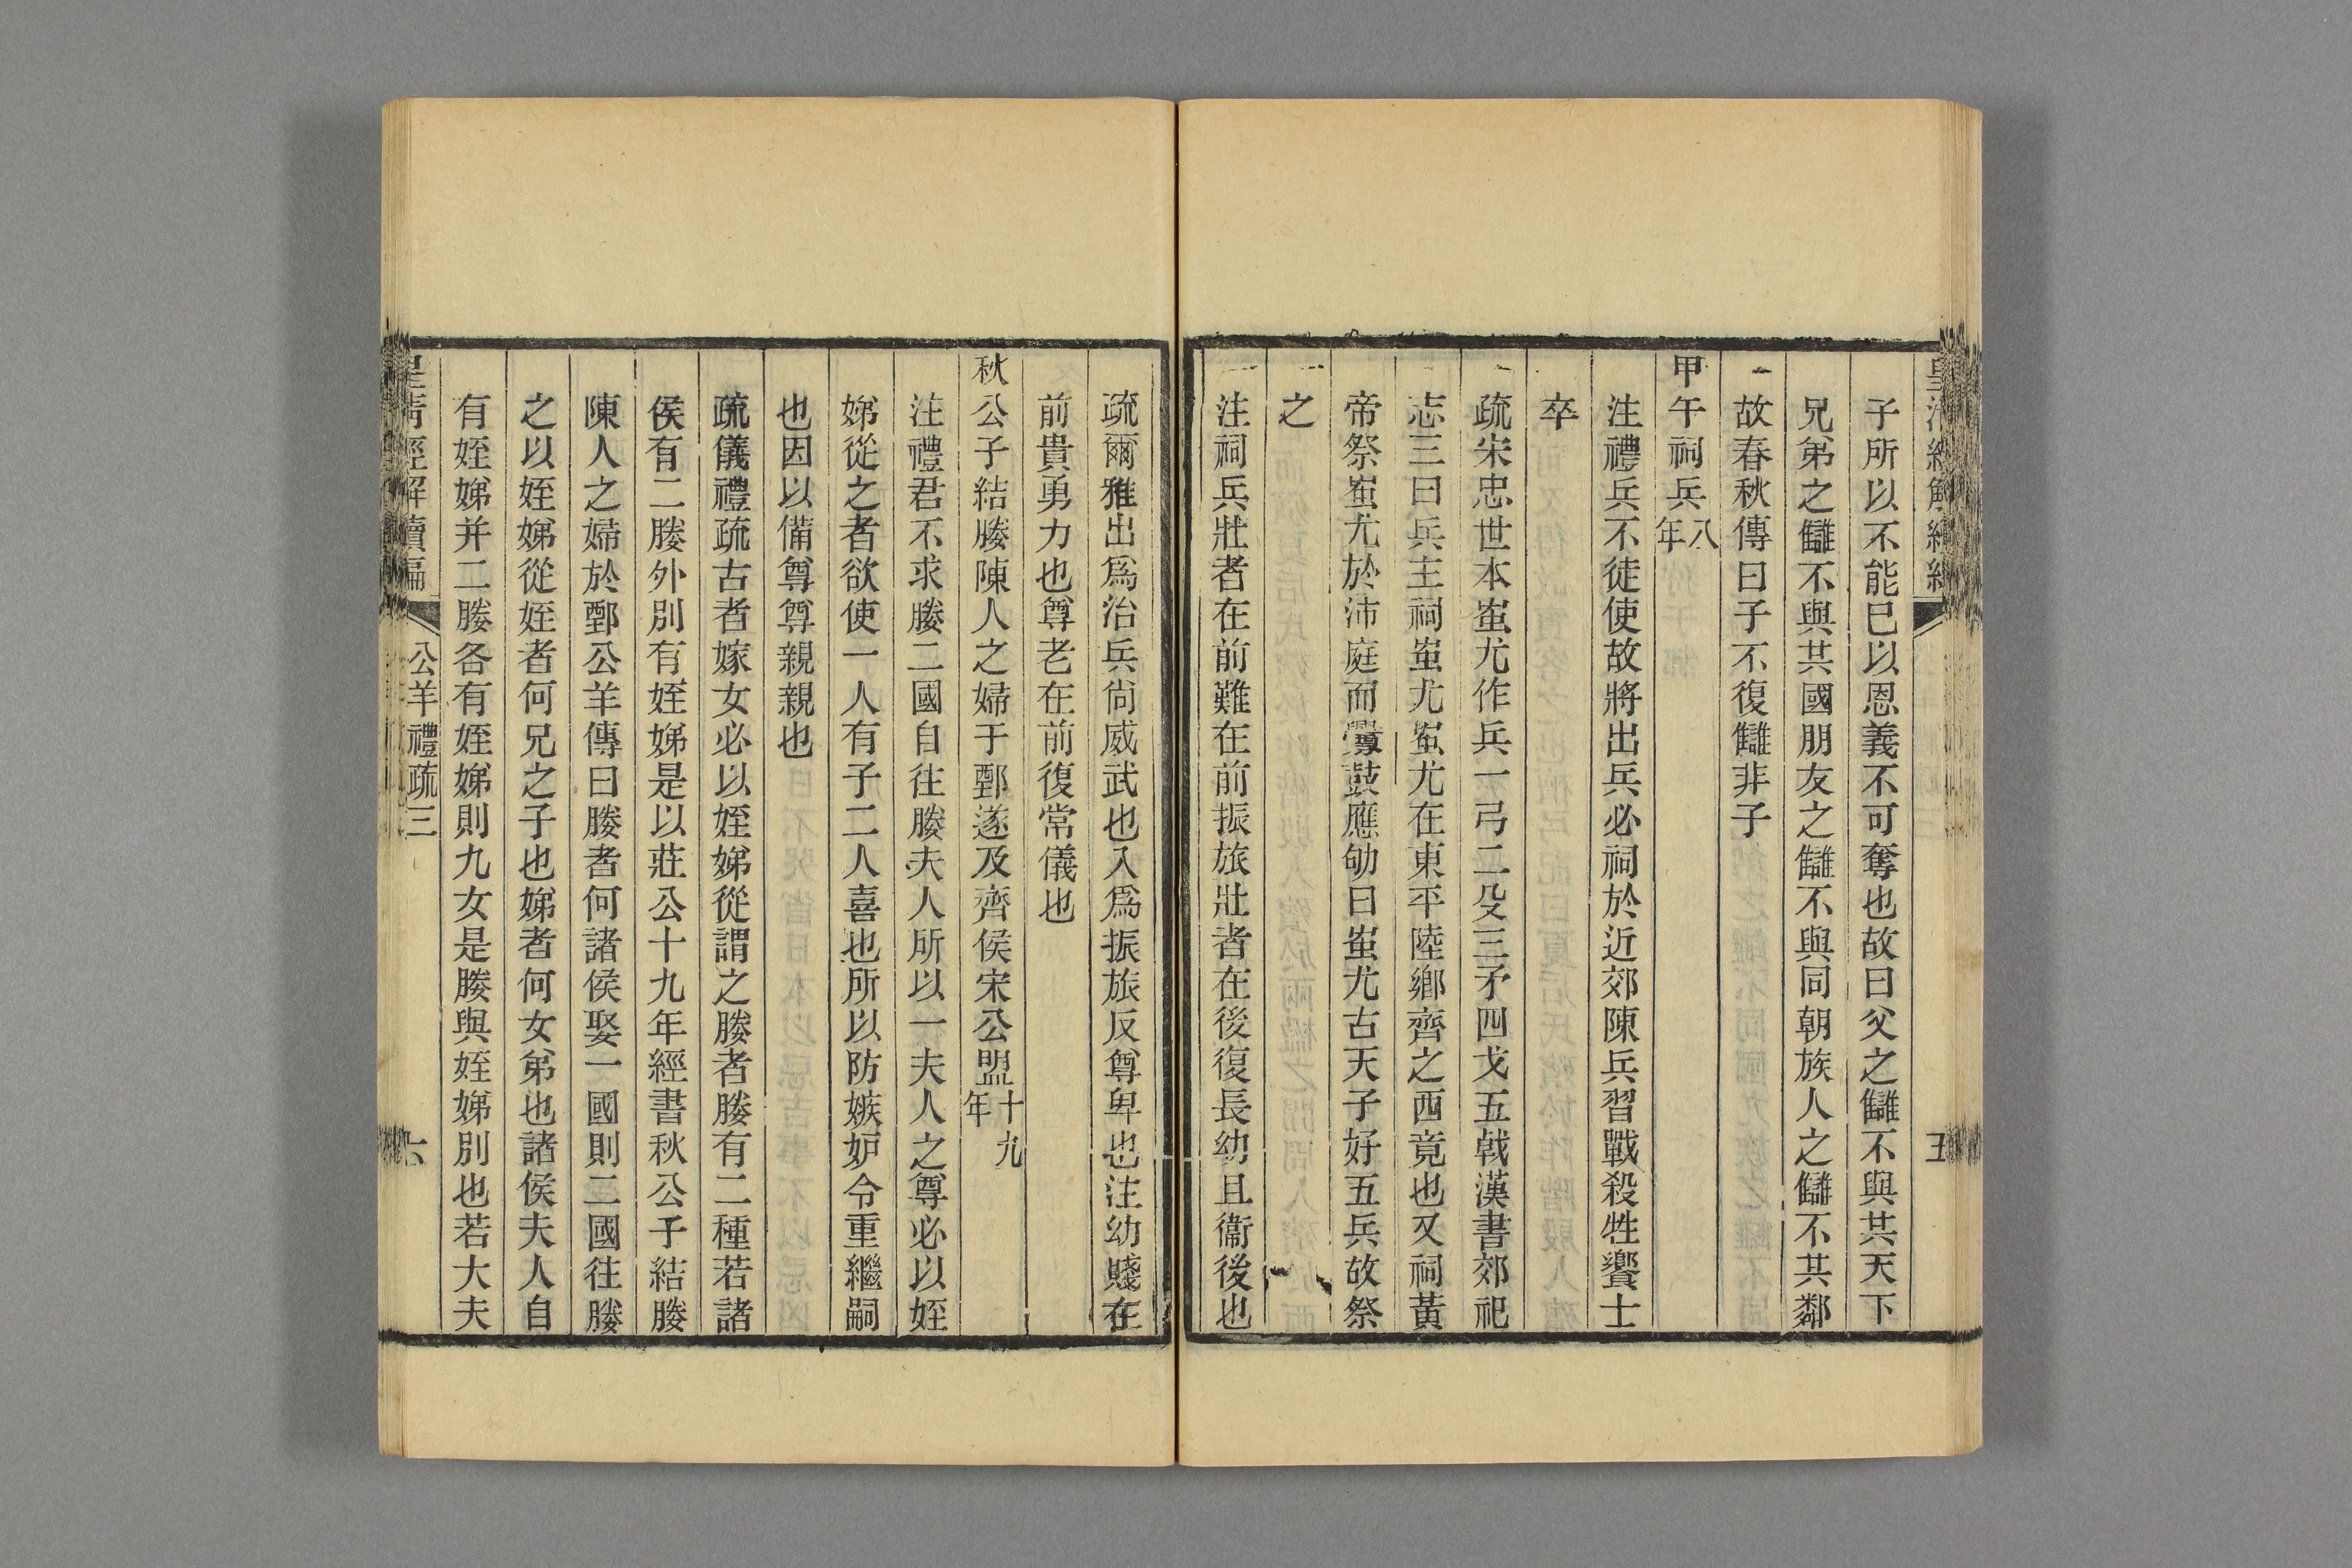 子所以不能已以恩義不可奪也故曰父之讎不與共天下
兄弟之讎不與共國朋友之讎不與同朝族人之讎不共鄰
故春秋傳曰子不復讎非子
甲午祠兵八年
注禮兵不徒使故將出兵必祠於近郊陳兵習戰殺牲饗士
卒
疏宋忠世本蚩尤作兵一弓二殳三矛四戈五戟漢書郊祀
志三曰兵主祠蚩尤蚩尤在東平陸鄉齊之西竟也又祠黃
帝祭蚩尤於沛庭而釁鼓應劭曰蚩尤古天子好五兵故祭
之
注祠兵壯者在前難在前振旅壯者在後復長幼且衞後也
疏爾雅出爲治兵尚威武也入爲振旅反尊卑也注幼賤在
前貴勇力也尊老在前復常儀也
秋公子結媵陳人之婦于鄄遂及齊侯宋公盟十九年
注禮君不求媵二國自往媵夫人所以一夫人之尊必以姪
娣從之者欲使一人有子二人喜也所以防嫉妒令重繼嗣
也因以備尊尊親親也
疏儀禮疏古者嫁女必以姪娣從謂之媵者媵有二種若諸
侯有二媵外別有姪娣是以莊公十九年經書秋公子結媵
陳人之婦於鄄公羊傳曰媵者何諸侯娶一國則二國往媵
之以姪娣從姪者何兄之子也娣者何女弟也諸侯夫人自
有姪娣并二媵各有姪娣則九女是媵與姪娣別也若大夫
皇清經解續編 公羊禮疏三 六